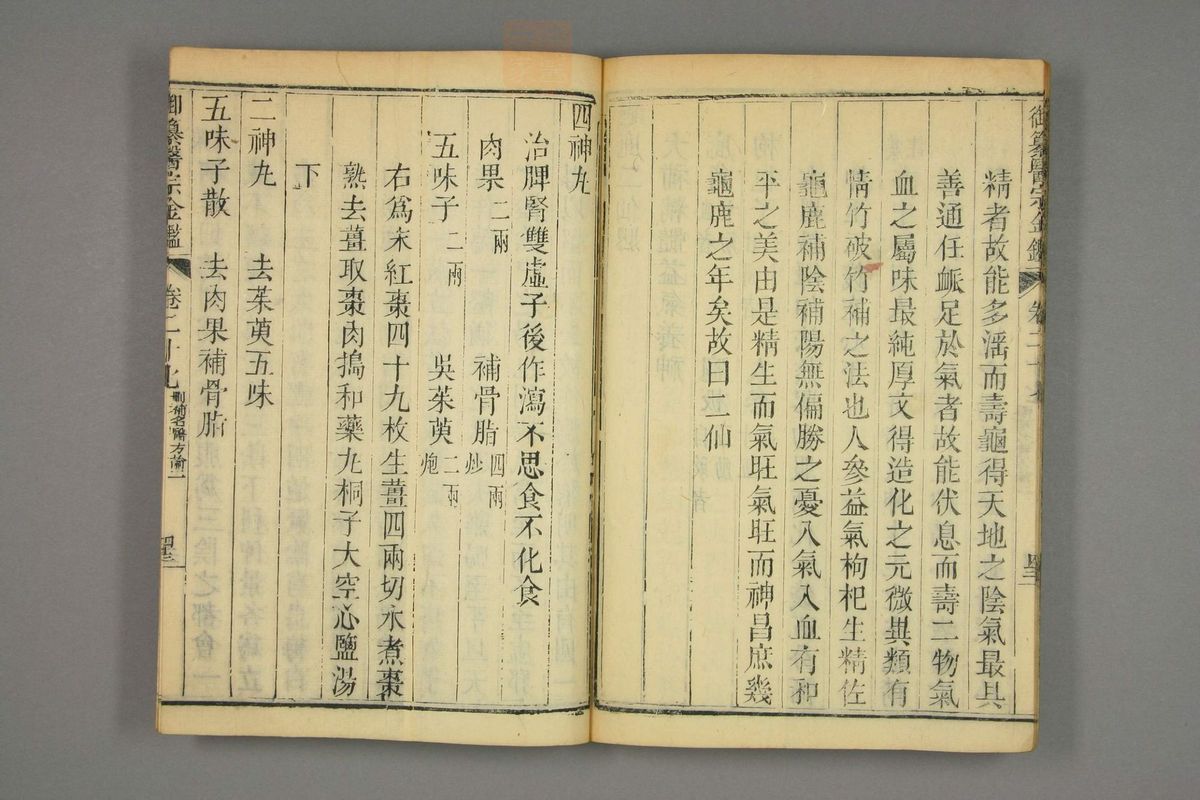 御纂醫宗金鑑 卷二十七
精者故能多淫而壽龜得天地之陰氣最具
善通任脈足於氣者故能伏息而壽二物氣
血之屬味最純厚文得造化之元微異類有
情竹破竹補之法也人參益氣枸杞生精佐
龜鹿補陰補陽無偏勝之憂入氣入血有和
平之美由是精生而氣旺氣旺而神昌庶幾
龜鹿之年矣故曰二仙
四神丸
治脾腎雙虛子後作瀉不思食不化食
肉果 二兩 補骨脂 四兩炒
五味子 二兩 吳茱萸 二兩炮
右為末紅棗四十九枚生薑四兩切水煮棗
熟去薑取棗肉搗和藥丸桐子大空心鹽湯
下
二神丸 去茱萸五味
五味子散 去肉果補骨脂
御纂醫宗金鑑 卷二十七 刪補名醫方論二